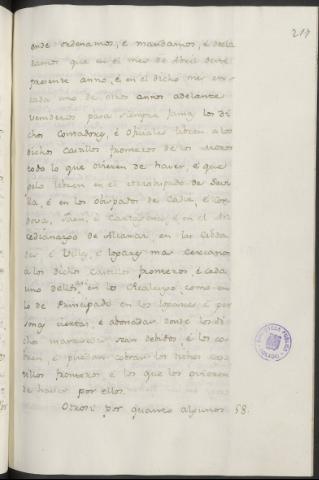 217
onde ordenamos, é mandamos, é decla
ramos que en el mes de Abril deste
presente anno, é en el dicho mes en
cada uno de otros annos adelante
venideros para siempre jamas los di
chos Contadores, é Oficiales libren a los
dichos Castillos fronteros de los Moros
todo lo que ovieren de haver, é que
gelo libren en el Arzobispado de Sevi
lla, é en los obispados de Cadiz, é Cor
dova, Jaen, é Cartagena é en el Ar
cedianazgo de Alcaraz, en las Cibda
des é Villas, é logares mas cercanos
á los dichos Castillos fronteros, é cada
uno dellos en lo Realengo como en
lo de Principado en los logares, é per
sonas ciertas, é abonadas donde los di
chos maravedis sean debidos é los co
bren, é puedan cobrar los dichos cas
tillos fronteros é los que los ovieren
de haver por ellos.
Otrosi por quanto algunos 58.
BIBLIOTECA PUBLICA
TOLEDO